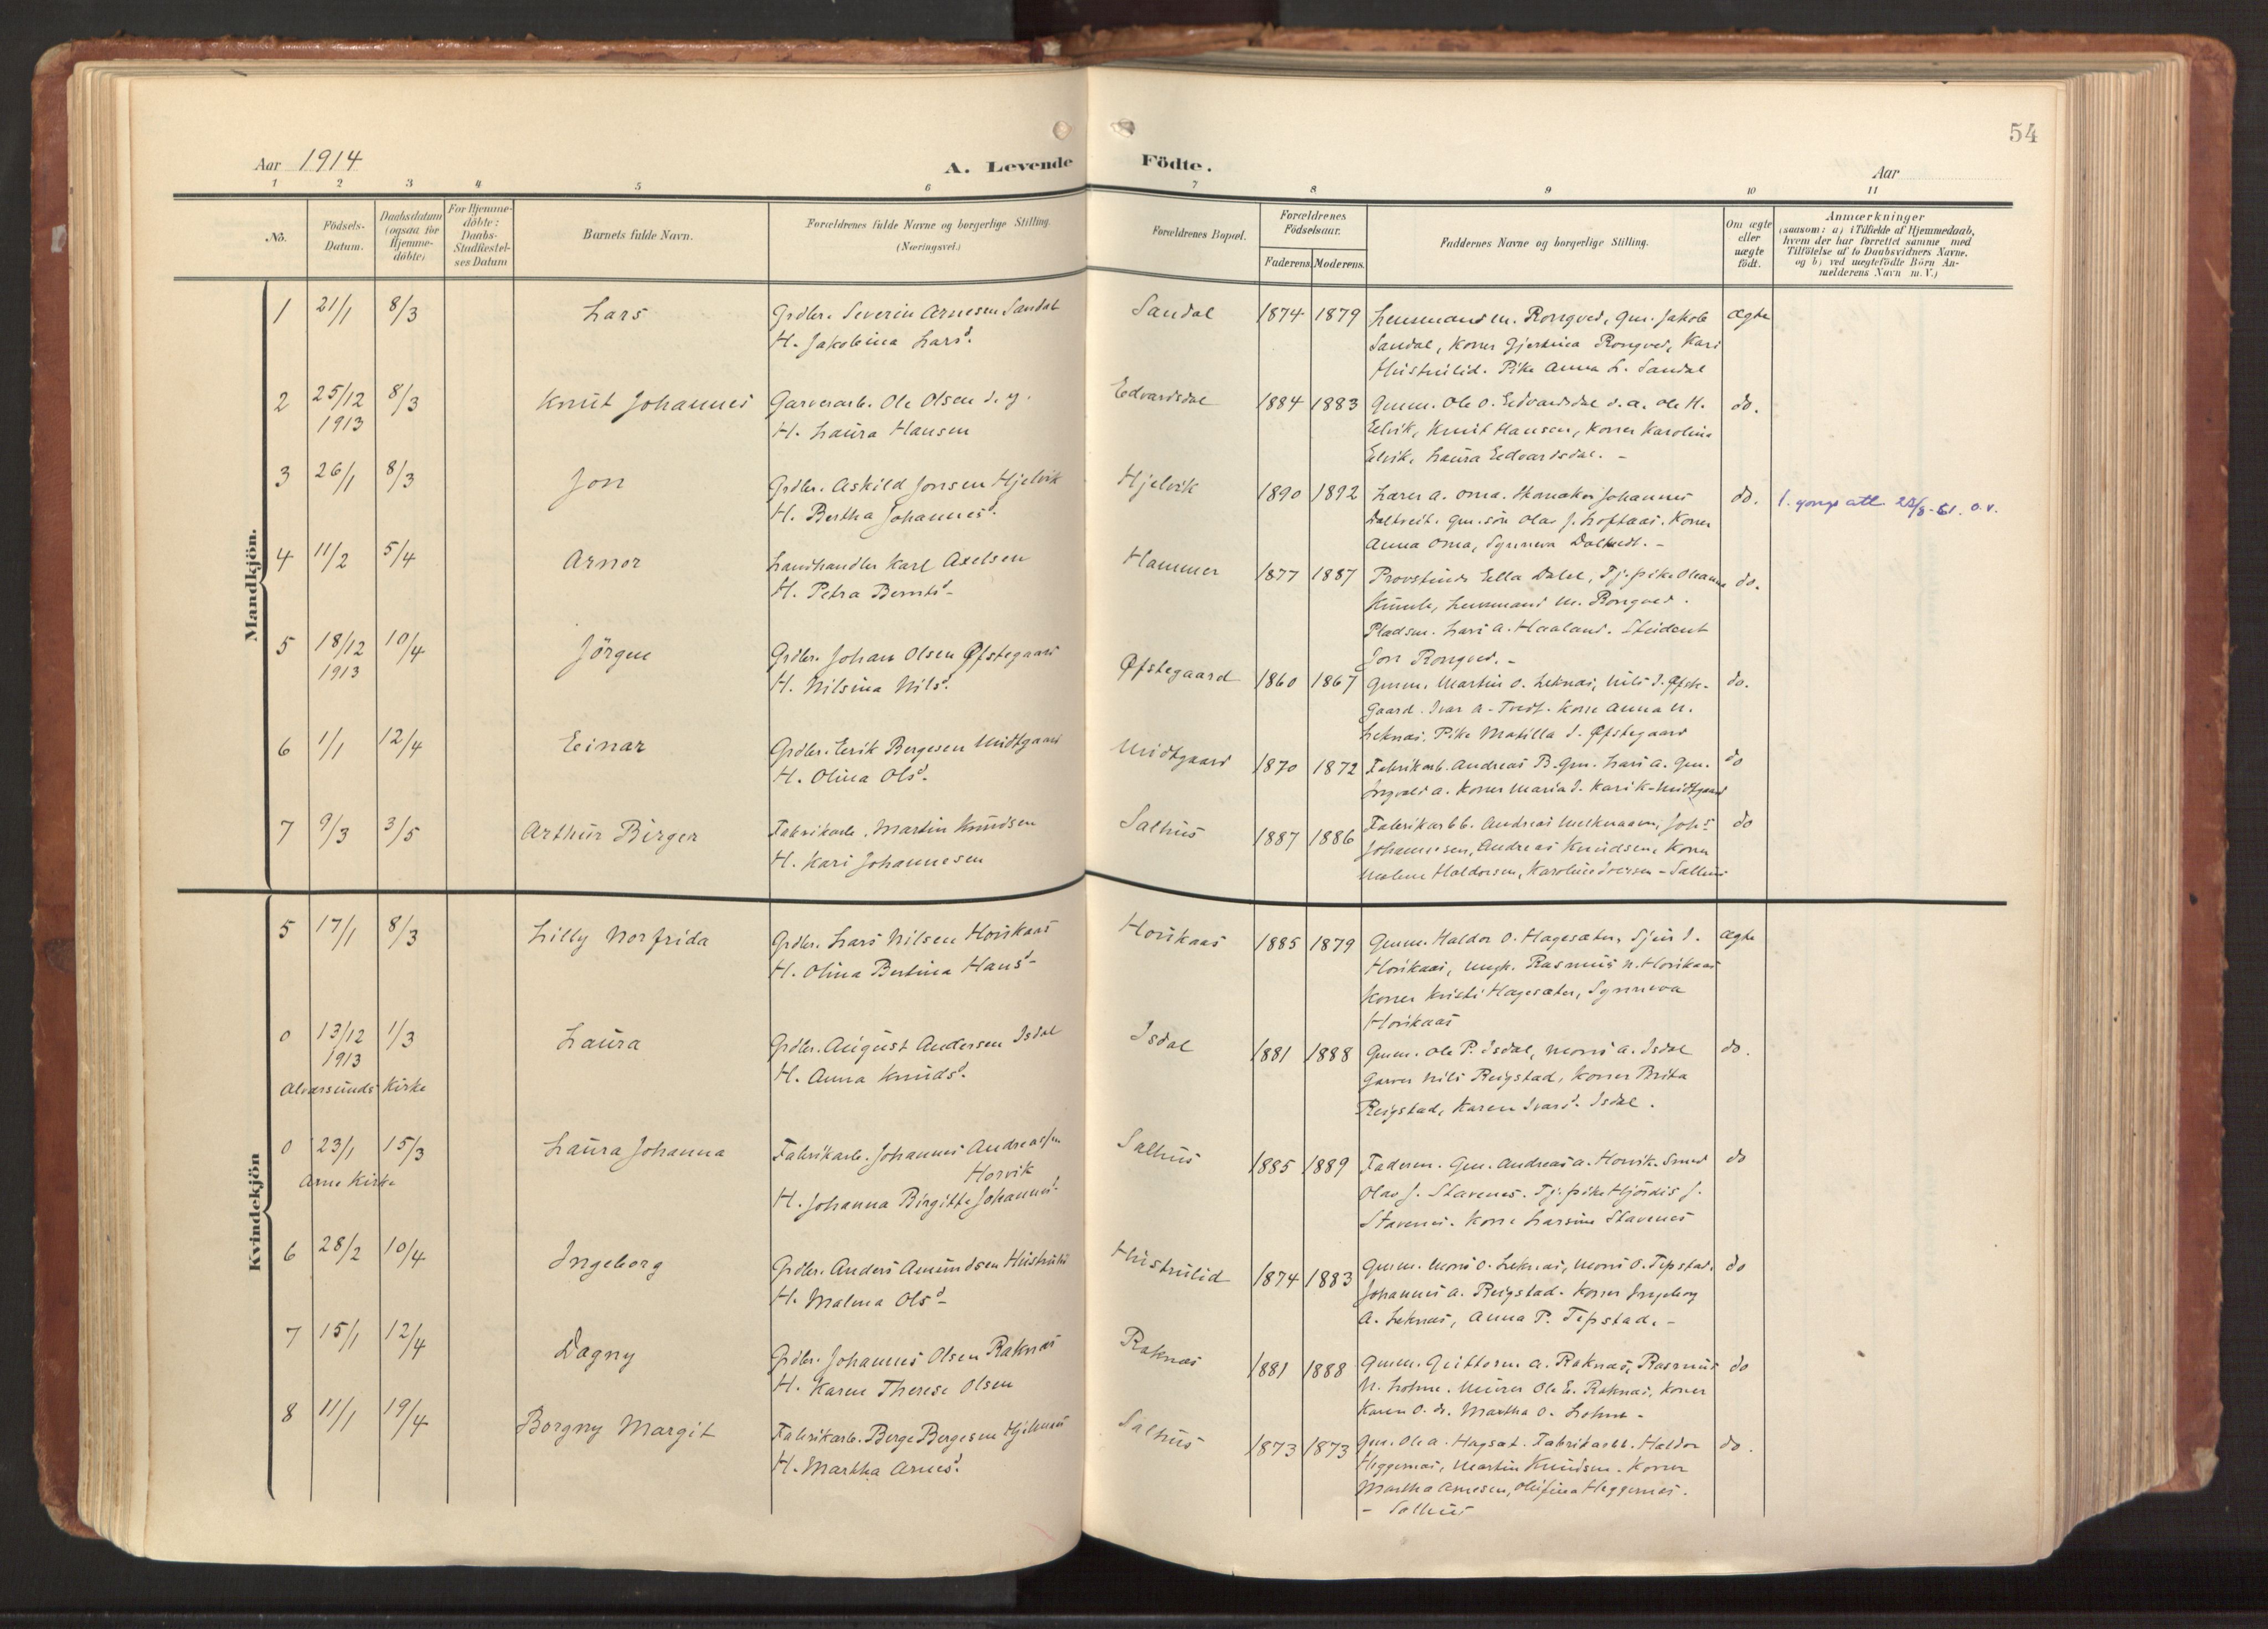 54
Aar 1914
A. Levende Födte.
Aar
1 2 3 4 5 6 7 8 9 10 11
No.
Födsels-
Datum.
Daabsdatum
(ogsaa for
Hjemme-
döbte)
For Hjemme-
döbte:
Daabs-
Stadfæstel-
ses Datum
Barnets fulde Navn.
Forældrenes fulde Navne og borgerlige Stilling.
(Næringsvei.)
Forældrenes Bopæl.
Forældrenes
Födselsaar.
Faderens. Moderens.
Faddernes Navne og borgerlige Stilling.
Om ægte
eller
uægte
födt.
Anmærkninger
(saasom: a) i Tilfælde af Hjemmedaab,
hvem der har forrettet samme med
Tilföielse af to Daabsvidners Navne.
og b) ved uægtefödte Börn An-
melderens Navn m. V.)
Mandkjön.
1 21/1 8/3 Lars Grdbr. Severin Arnesen Sandal Sandal 1874 1879 Lensmand M. Rongved, Gm. Jakob ægte
H. Jakobina Larsd.
Sandal, Koner Gjertina Rongved, Kari
Husturlid. Pike Anna L. Sandal
2 25/12 8/3 Knut Johannes Garverarb. Ole Olsen d. y. Edvardsdal 1884 1883 Gmm. Ole O. Edvardsdal d. a. Ole H. do.
1913 H. Laura Hansen
Eelvik, Knut Hansen, Koner Karolina
Eelvik, Laura Edvardsdal. -
3 26/1 8/3 Jon Grdbr. Askild Jonsen Hjelvik Hjelvik 1890 1892 Lærer A. Oma. Johannes do.
H. Bertha Johannesd.
Daltveit. Gm. sön Olav J. Loftaas. Koner
Anna Oma, Synneva Daltveit. -
4 11/2 5/4 Arnor Landhandler Karl Axelsen Hammer 1877 1887 Ella Dahl, Tj. pike Oleanna do.
H. Petra Berntsd.
Lensmand M. Rongved.
Pladsm. Lars A. Haaland. Student
Jon Rongved. -
5 18/12 10/4 Jörgen Grdbr. Johan Olsen Øfstegaard Øfstegaard 1860 1867 Gmm. Martin O. Leknes, Nils J. Øfste- do.
1913 H. Nilsina Nilsd.
gaard. Ivar A. Tvedt. Kone Anna N.
Leknes. Pike J. Øfstegaard
6 1/1 12/4 Einar Grdbr. Erik Bergesen Midtgaard Midtgaard 1870 1872 Fabrikarb. Andreas B. Gm. Lars A. Gm. do
H. Olina Olsd.
Ingvald A. Koner Maria J. Kari K. Midtgaard
7 9/3 3/5 Arthur Birger Fabrikarb. Martin Knudsen Salhus 1887 1886 Fabrikarbb. Andreas Johs. do
H. Kari Johannesen
Johannesen, Andreas Knudsen, Koner
Malene Haldorsen, Karoline Iversen - Salhus
Kvindekjön
5 17/1 8/3 Lilly Norfrida Grdbr. Lars Nilsen Horskaas Horskaas 1885 1879 Gmm. Haldor O. Hagesæter, Sjur J. ægte
H. Olina Bertina Hansd.
Horskaas, Ungk. Rasmus N. Horskaas
Koner Kristi Hagesæter, Synneva
Horskaas
0 13/12 1/3 Laura Grdbr. August Andersen Isdal Isdal 1881 1888 Gmm. Ole P. Isdal, Mons A. Isdal do.
1913 H. Anna Knudsd.
Alversunds Kirke
Garver Nils Reigstad, Koner Brita
Reigstad, Karen Ivarsd. Isdal.
0 23/1 15/3 Laura Johanna Fabrikarb. Johannes Andreassen Salhus 1885 1889 Faderen. Gm. Andreas A. Horvik. Smed do
Horvik
Arne Kirke H. Johanna Birgitte Johannesd.
Olav J. Stavenes. Tj. pike Hjördis J.
Stavenes. Kone Larsine Stavenes
6 28/2 10/4 Ingeborg Grdbr. Anders Amundsen Husturlid Husturlid 1874 1883 Gmm. Mons O. Leknes, Mons O. Tepstad. do
H. Malena Olsd.
Johannes A. Reigstad. Koner Ingeborg
A. Leknes, Anna P. Tepstad. -
7 15/1 12/4 Dagny Grdbr. Johannes Olsen Raknes Raknes 1881 1888 Gmm. Guttorm A. Raknes, Rasmus do
H. Karen Therese Olsen
N. Lohne. Murer Ole E. Raknes, Koner
Karen O. do. Martha O. Lohne -
8 11/1 19/4 Borgny Margit Fabrikarb. Berge Bergesen Hjelmaas Salhus 1873 1873 Gm. Ole A. Hagsæt. Fabrikarbb. Haldor do.
H. Martha Arnesd.
Heggernes, Martin Knudsen. Koner
Martha Arnesen, Olufina Heggernes.
- Salhus